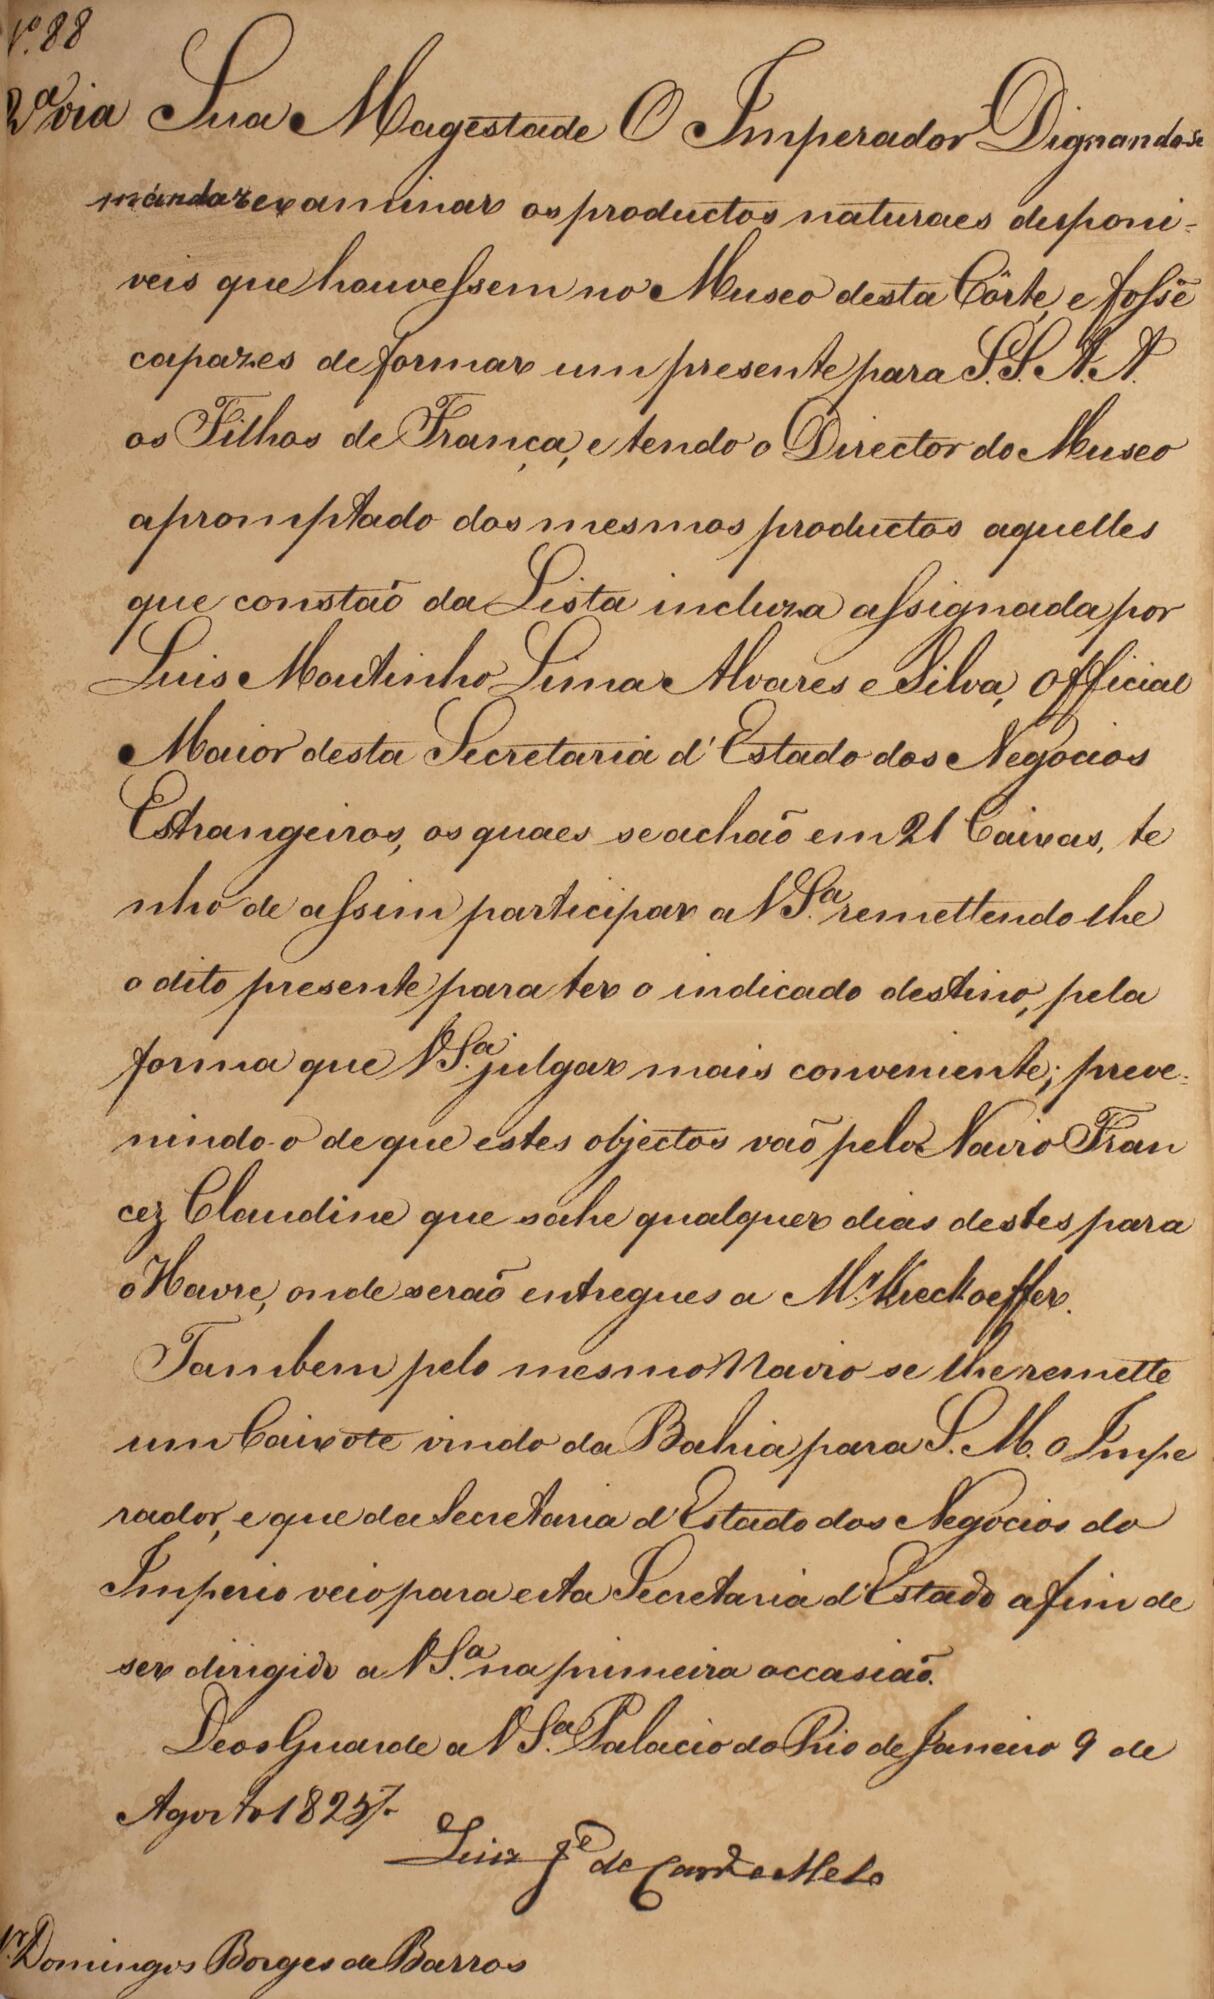 N.º 88
2ª via Sua Magestade O Imperador Dignando-se
mandar examinar os productos naturaes disponi-
veis que houvessem no Museo desta Côrte, e fossẽ
capazes de formar um presente para S.S. A.A.
os Filhos de França, e tendo o Director do Museo
apromptado dos mesmos productos aquelles
que constaõ da Lista incluza assignada por
Luis Moutinho Lima Alvares e Silva, Official
Maior desta Secretaria d'Estado dos Negocios
Estrangeiros, os quaes se achaõ em 21 Caixas, te
nho de assim participar a V Sª. remettendo lhe
o dito presente para ter o indicado destino, pela
forma que V Sª. julgar mais conveniente; preve-
nindo-o de que estes objectos vaõ pelo Navio Fran
cez Claudine que sahe qualquer dias destes para
o Havre, onde seraõ entregues a M.r Kieckoeffer.
Tambem pelo mesmo Navio se lhe remette
um Caixote vindo da Bahia para S. M. o Impe
rador, e que da Secretaria d'Estado dos Negocios do
Imperio veio para esta Secretaria d'Estado a fim de
ser dirigido a V Sª. na primeira occasiaõ.
Deos Guarde a V Sª. Palacio do Rio de Janeiro 9 de
Agosto 1825.
Luiz Jº de Carvº e Mello
Domingos Borges de Barros